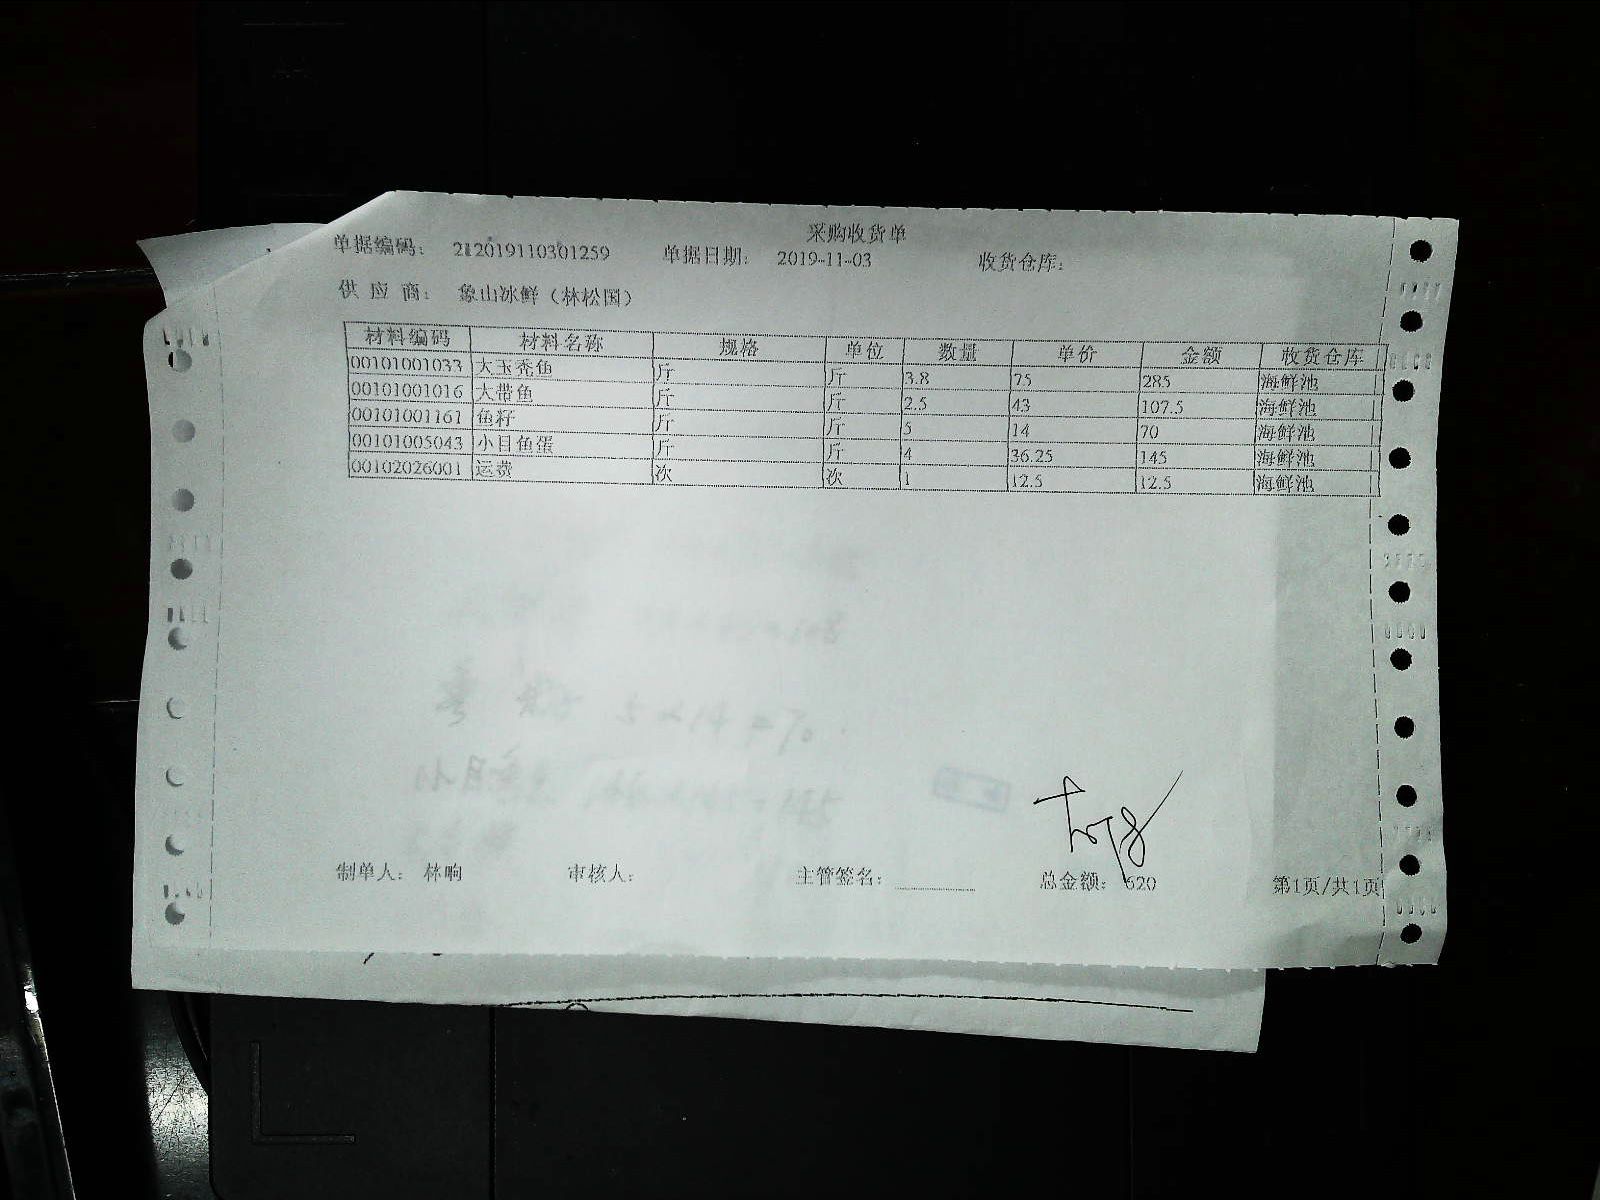 采购收货单
单据编码： 212019110301259 单据日期： 2019-11-03 收货仓库：
供 应 商： 象山冰鲜（林松国）
材料编码 材料名称 规格 单位 数量 单价 金额 收货仓库
00101001033 大玉秃鱼 斤 斤 3.8 75 285 海鲜池
00101001016 大带鱼 斤 斤 2.5 43 107.5 海鲜池
00101001161 鱼籽 斤 斤 5 14 70 海鲜池
00101005043 小目鱼蛋 斤 斤 4 36.25 145 海鲜池
00102026001 运费 次 次 1 12.5 12.5 海鲜池
5×14=70
制单人： 林响 审核人： 主管签名： 总金额： 620 第1页/共1页